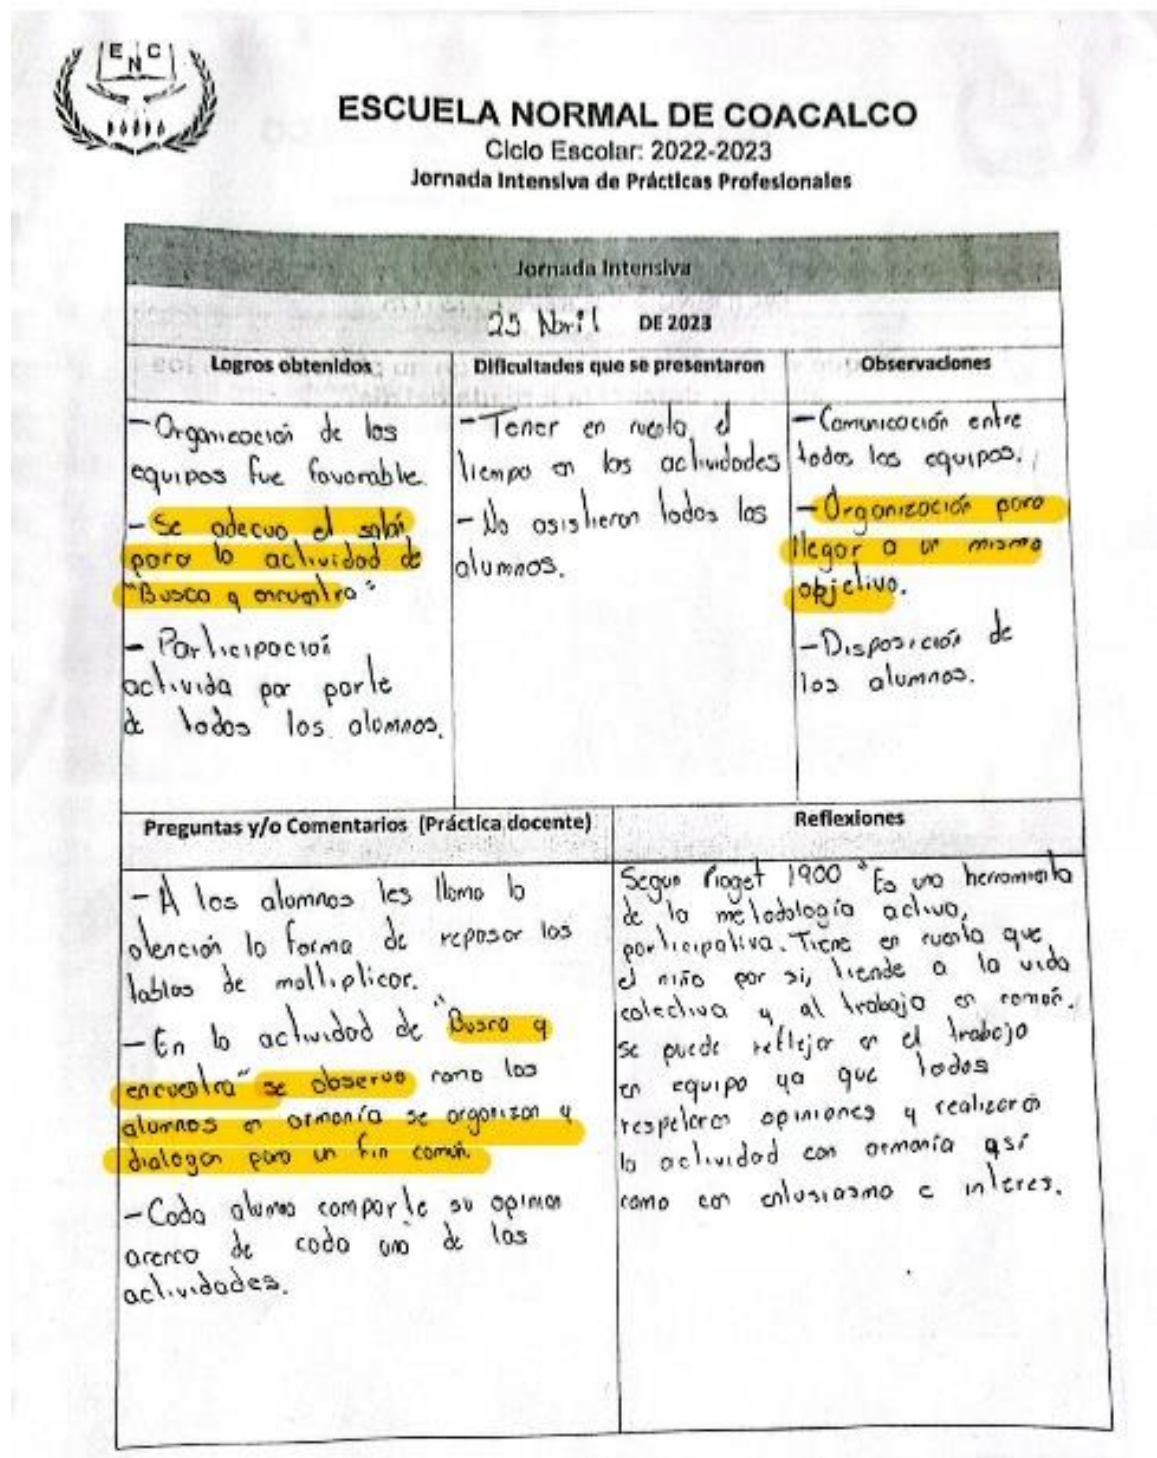 E N C
ESCUELA NORMAL DE COACALCO
Ciclo Escolar: 2022-2023
Jornada Intensiva de Prácticas Profesionales
Jornada Intensiva
25 Abril DE 2023
Logros obtenidos
- Organización de los
equipos fue favorable.
- Se adecuo el salón
para la actividad de
"Busca y encuentra"
- Participación
activida por parte
de todos los alumnos.
Dificultades que se presentaron
- Tener en cuenta el
tiempo en las actividades
- No asistieron todos los
alumnos.
Observaciones
- Comunicación entre
todos los equipos.
- Organización para
llegar a un mismo
objetivo.
- Disposición de
los alumnos.
Preguntas y/o Comentarios (Práctica docente)
- A los alumnos les llamo la
atención la forma de repasar las
tablas de multiplicar.
- En la actividad de "Busca y
encuentra" se observo como los
alumnos en armonía se organizan y
dialogan para un fin común.
- Cada alumno comparte su opinion
acerca de cada una de las
actividades.
Reflexiones
Segun Piaget 1900 "Es una herramienta
de la metodología activa,
participativa. Tiene en cuenta que
el niño por si, tiende a la vida
colectiva y al trabajo en común.
se puede reflejar en el trabajo
en equipo ya que todos
respetaron opiniones y realizaron
la actividad con armonía así
como con entusiasmo e interes.